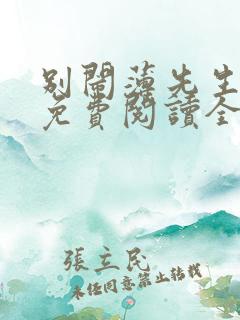 別鬧薄先生
免費閱讀全
張立民
未經同意禁止轉載